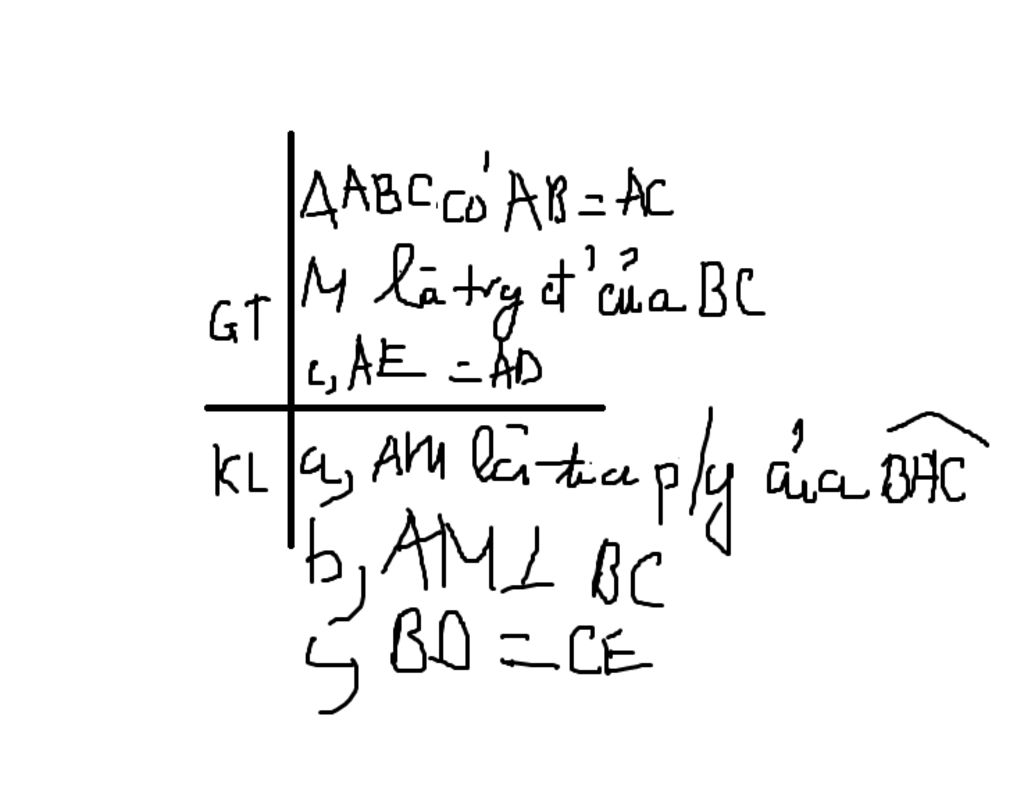 ΔABC có AB = AC
GT
M là trg đ' của BC
c, AE = AD
KL
a, AM là tia p/g của BAC
b, AM ⊥ BC
c, BD = CE